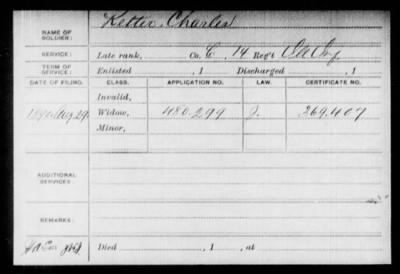 NAME OF SOLDIER: Ketter, Charles
SERVICE: Late rank, Co. C, 14 Reg't
TERM OF SERVICE: Enlisted , 1 Discharged , 1
DATE OF FILING. CLASS. APPLICATION NO. LAW. CERTIFICATE NO.
Invalid,
1890 Aug 29. Widow, 480.299 J. 369.407
Minor,
ADDITIONAL SERVICES:
REMARKS:
Died , 1 , at